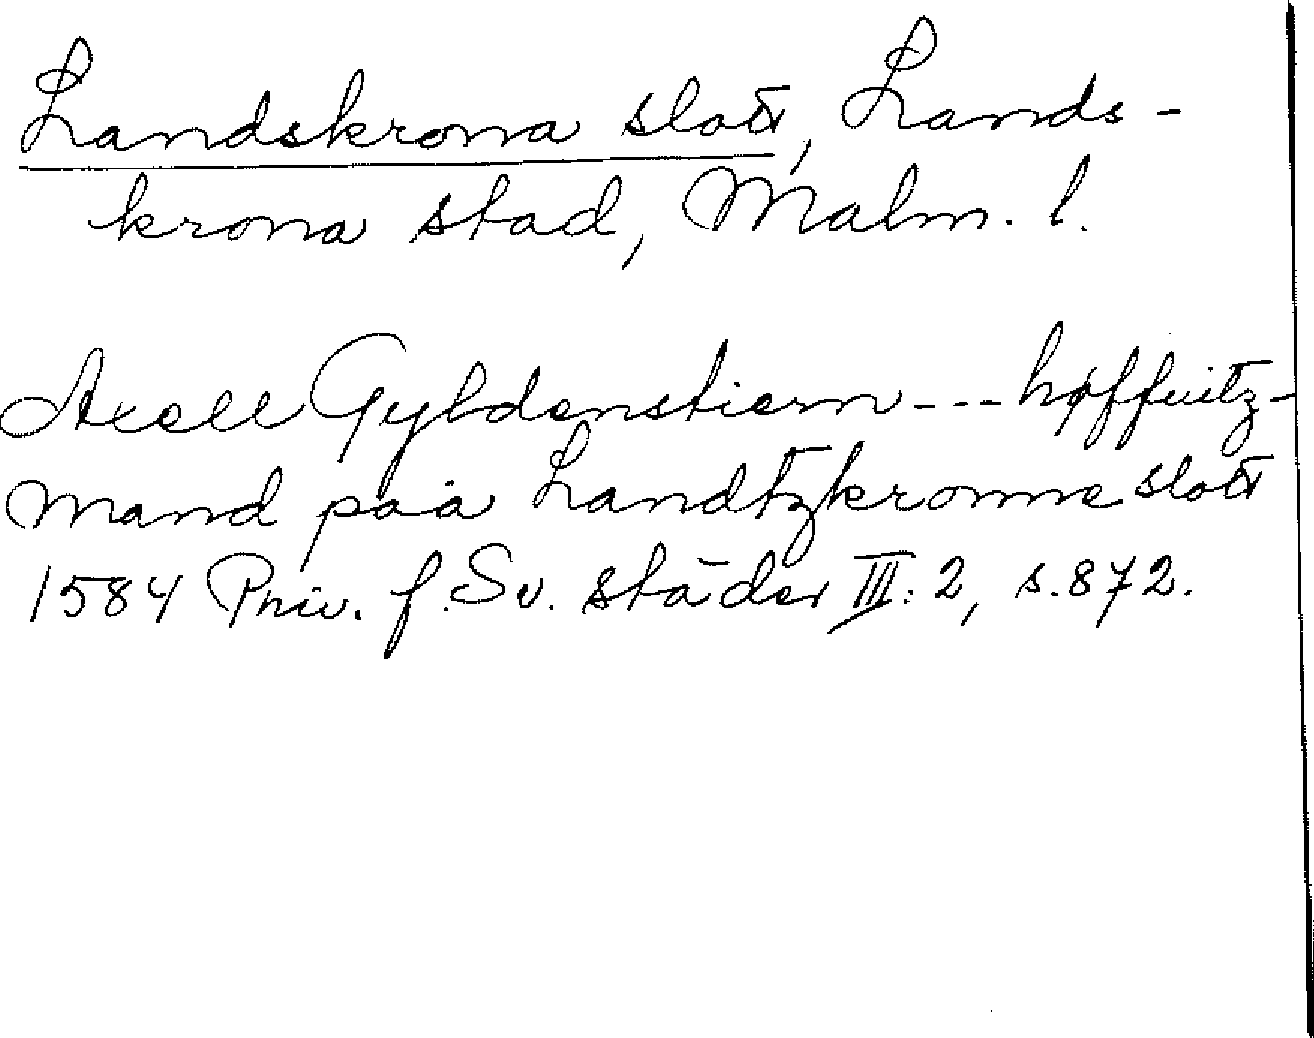 Landskrona slott, Lands-
krona stad, Malm. l.
Axell Gyldenstiern --- høffuitz-
mand paa Landtzkronne slott
1584 Priv. f. Sv. städer III: 2, s. 872.